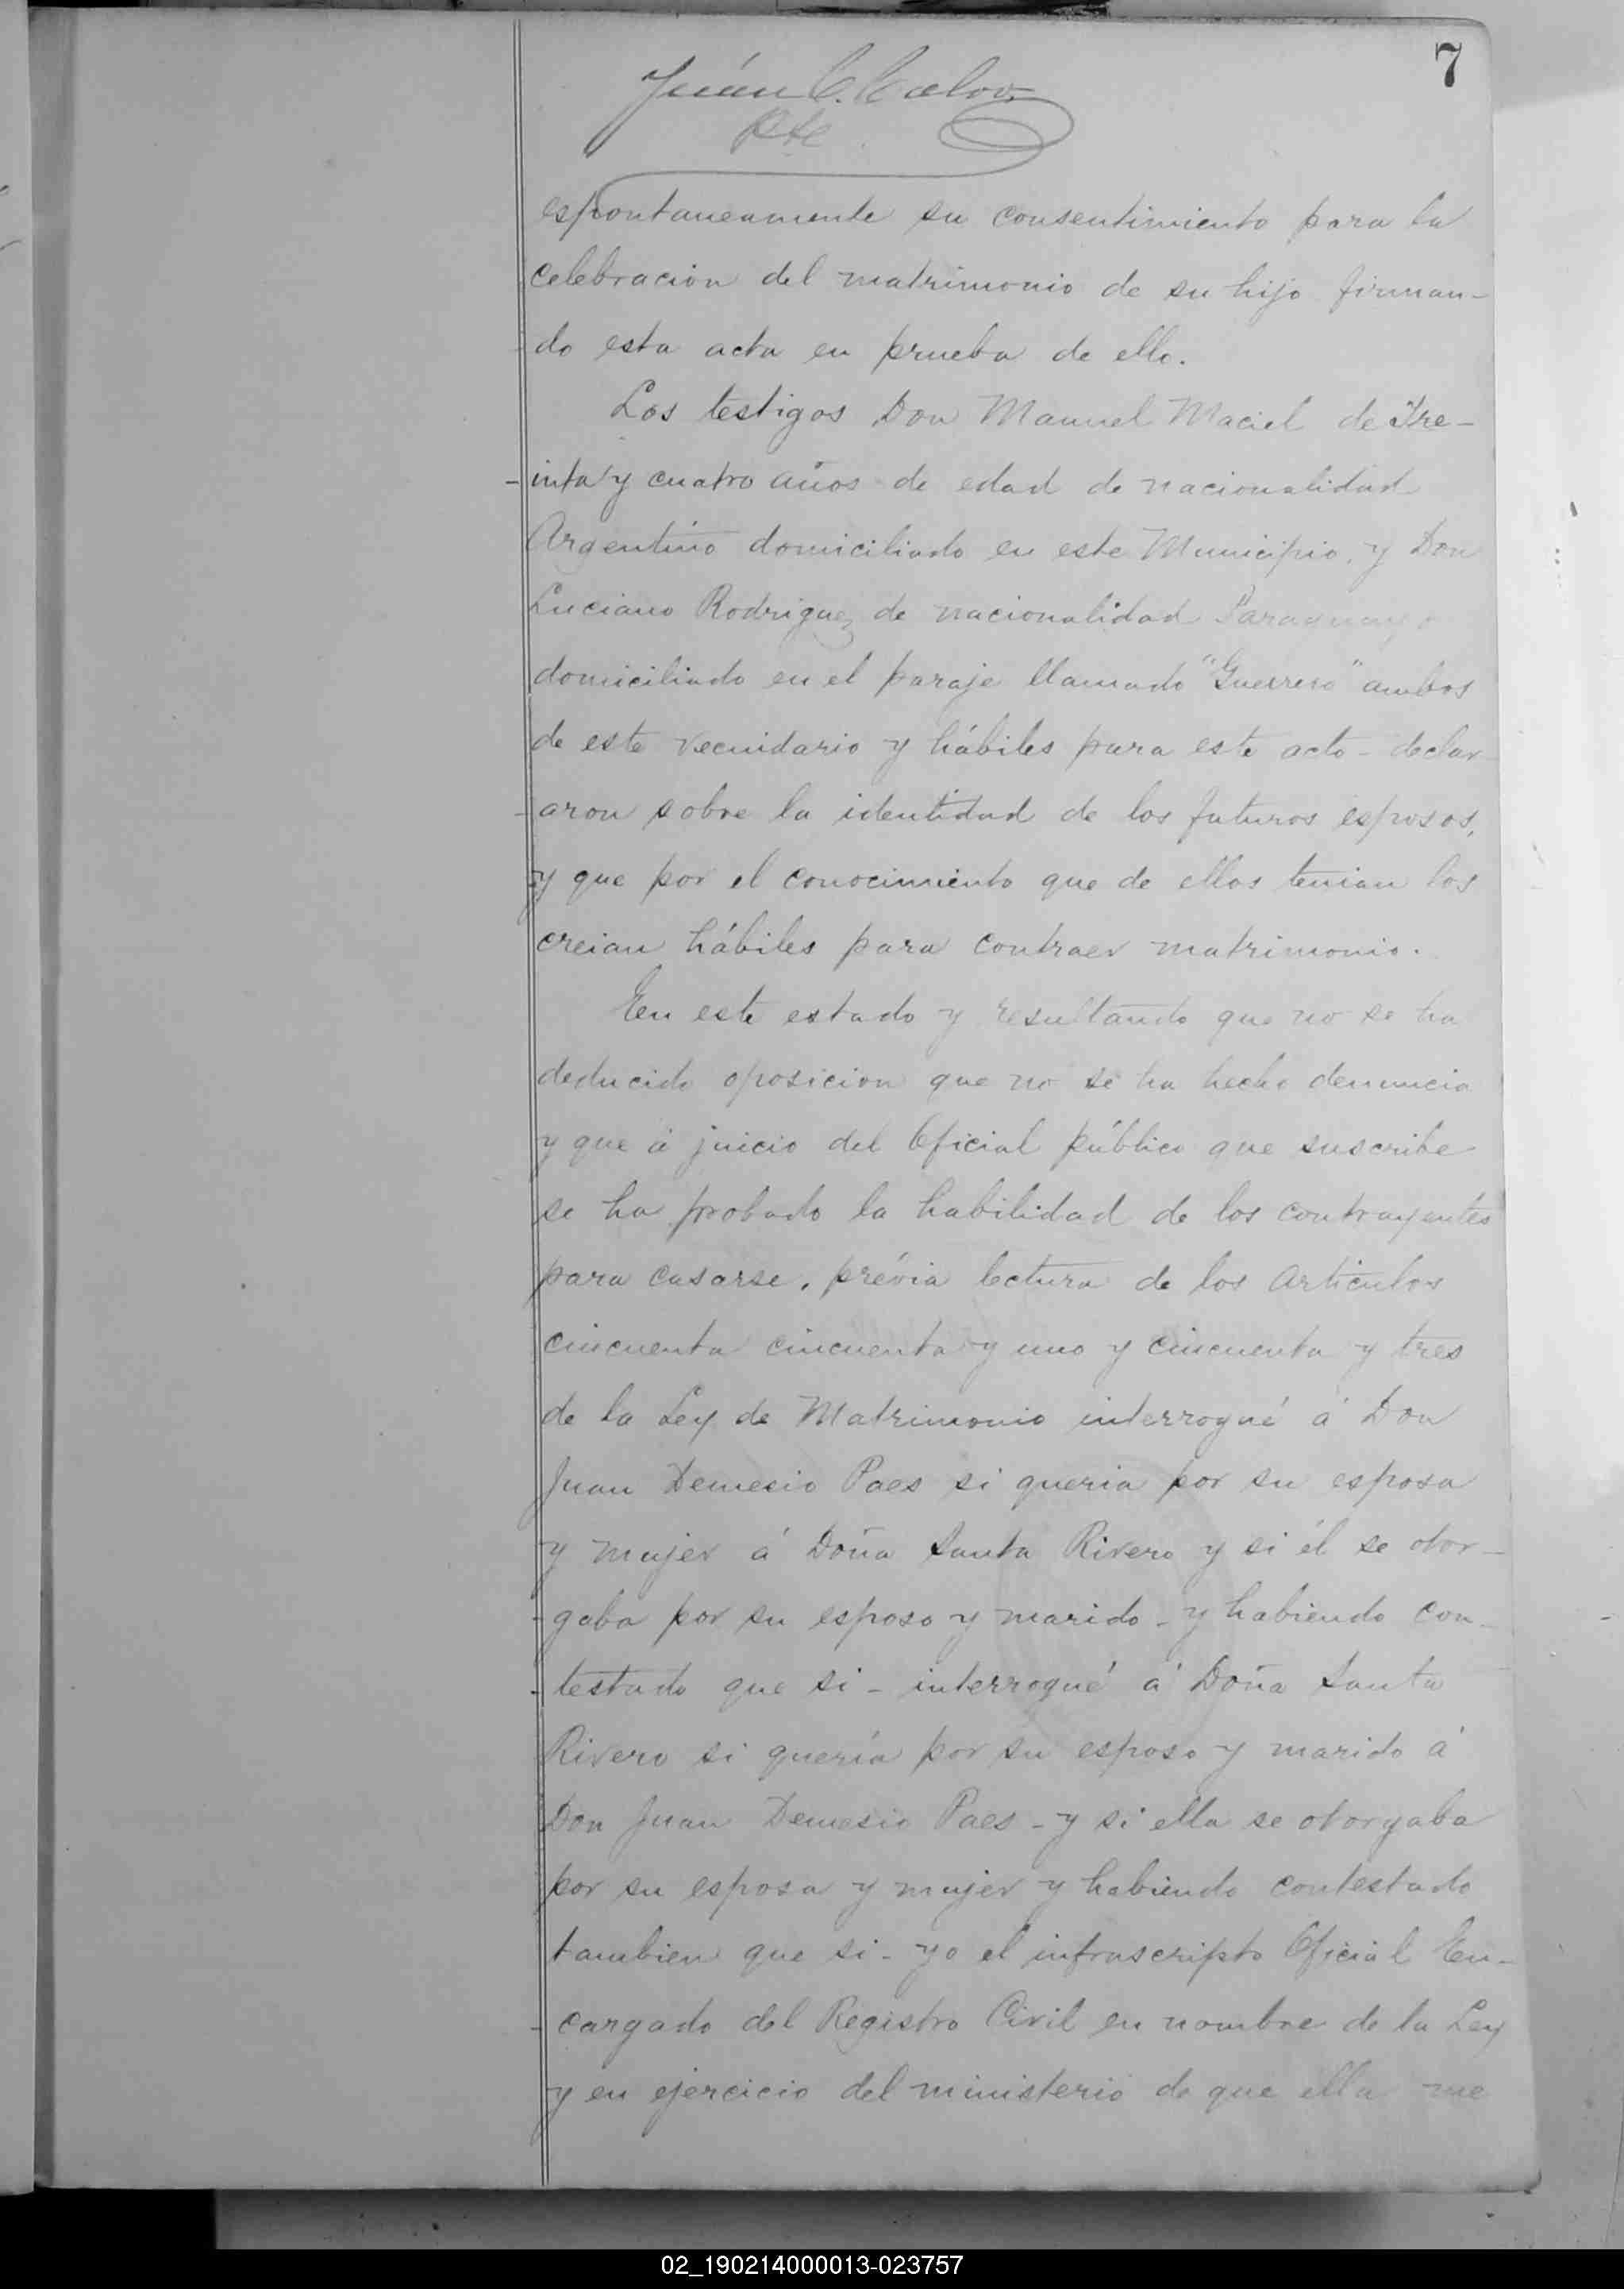 7
Juan C. Calvo
Pte
espontaneamente su consentimiento para la
celebracion del matrimonio de su hijo firman-
do esta acta en prueba de ello.
Los testigos Don Manuel Maciel de Tre-
-inta y cuatro años de edad de nacionalidad
Argentino domiciliado en este Municipio, y Don
Luciano Rodriguez de nacionalidad Paraguayo
domiciliado en el paraje llamado "Guerrero" ambos
de este vecindario y hábiles para este acto - declar
-aron sobre la identidad de los futuros esposos,
y que por el conocimiento que de ellos tenian los
creian hábiles para contraer matrimonio.
En este estado y resultando que no se ha
deducido oposicion que no se ha hecho denuncia
y que á juicio del Oficial público que suscribe
se ha probado la habilidad de los contrayentes
para casarse, prévia lectura de los articulos
cincuenta cincuenta y uno y cincuenta y tres
de la Ley de Matrimonio interrogué á Don
Juan Demesio Paes si queria por su esposa
y mujer á Doña Santa Rivero y si él se otor-
-gaba por su esposo y marido - y habiendo con-
-testado que si - interrogué á Doña Santa
Rivero si quería por su esposo y marido á
Don Juan Demesio Paes - y si ella se otorgaba
por su esposa y mujer y habiendo contestado
tambien que si - yo el infrascripto Oficial En-
-cargado del Registro Civil en nombre de la Ley
y en ejercicio del ministerio de que ella me
02_190214000013-023757